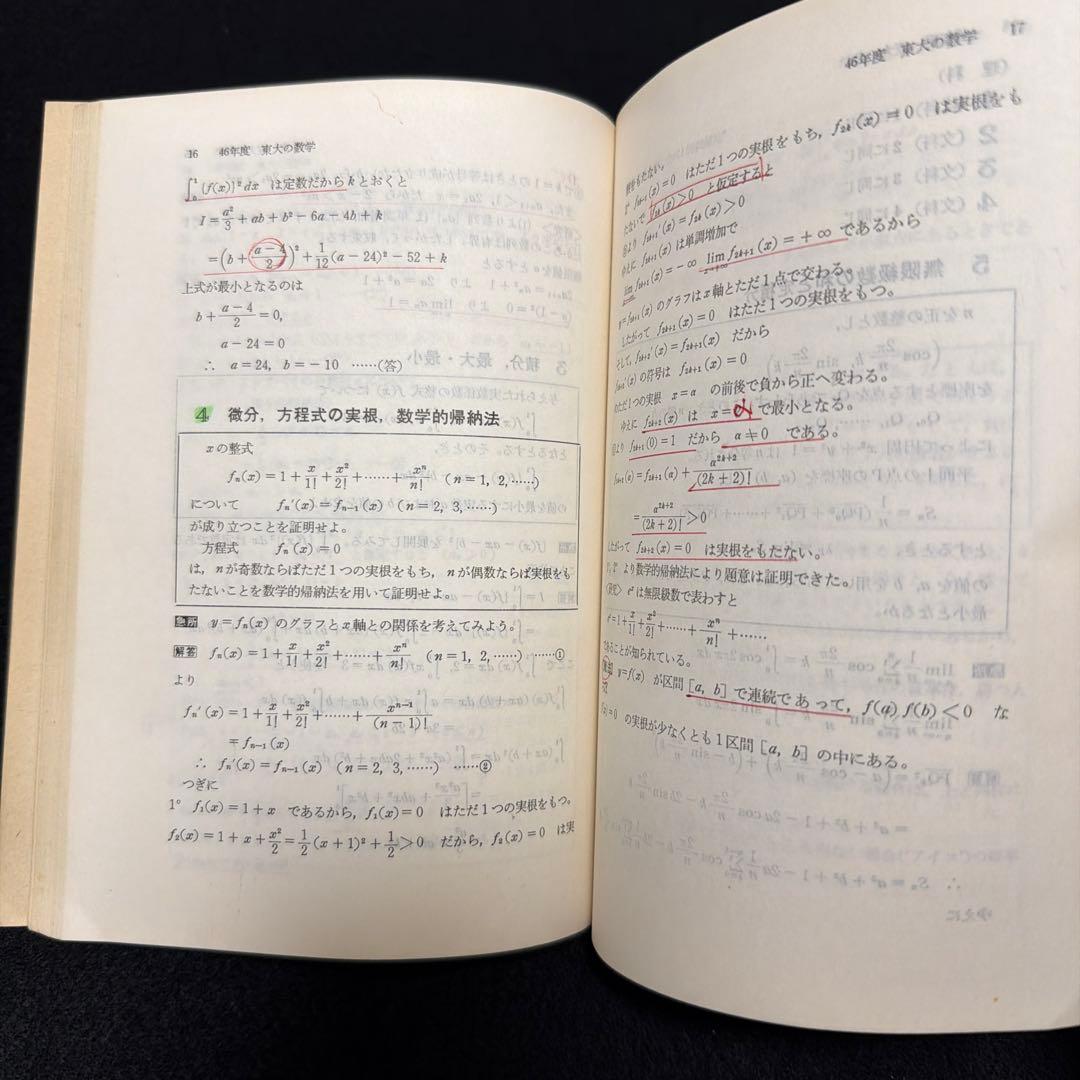 16 46年度 東大の数学
∫₀¹{f(x)}²dx は定数だから k とおくと
I=a²/3+ab+b²−6a−4b+k
=(b+(a−4)/2)²+1/12(a−24)²−52+k
上式が最小となるのは
b+(a−4)/2=0,
a−24=0
∴ a=24, b=−10 ……(答)
4 微分, 方程式の実根, 数学的帰納法
x の整式
fₙ(x)=1+x/1!+x²/2!+……+xⁿ/n! (n=1, 2,……)
について fₙ′(x)=fₙ₋₁(x) (n=2, 3,……)
が成り立つことを証明せよ。
方程式 fₙ(x)=0
は, n が奇数ならばただ1つの実根をもち, n が偶数ならば実根をも
たないことを数学的帰納法を用いて証明せよ。
急所 y=fₙ(x) のグラフと x 軸との関係を考えてみよう。
解答 fₙ(x)=1+x/1!+x²/2!+……+xⁿ/n! (n=1, 2,……) ……①
より
fₙ′(x)=1+x/1!+x²/2!+……+xⁿ⁻¹/(n−1)!
=fₙ₋₁(x)
∴ fₙ′(x)=fₙ₋₁(x) (n=2, 3,……) ……②
つぎに
1° f₁(x)=1+x であるから, f₁(x)=0 はただ1つの実根をもつ。
f₂(x)=1+x+x²/2=1/2(x+1)²+1/2>0 だから, f₂(x)=0 は実
46年度 東大の数学 17
根をもたない。
2° f₂ₖ₋₁(x)=0 はただ1つの実根をもち, f₂ₖ(x)=0 は実根をも
たないで f₂ₖ(x)>0 と仮定すると
より f₂ₖ₊₁′(x)=f₂ₖ(x)>0
ゆえに f₂ₖ₊₁(x) は単調増加で
lim f₂ₖ₊₁(x)=−∞, lim f₂ₖ₊₁(x)=+∞ であるから
y=f₂ₖ₊₁(x) のグラフは x 軸とただ1点で交わる。
したがって f₂ₖ₊₁(x)=0 はただ1つの実根をもつ。
そして, f₂ₖ₊₂′(x)=f₂ₖ₊₁(x) だから
f₂ₖ₊₂′(x) の符号は f₂ₖ₊₁(x)=0
のただ1つの実根 x=α の前後で負から正へ変わる。
ゆえに f₂ₖ₊₂(x) は x=α で最小となる。
①より f₂ₖ₊₁(0)=1 だから α≠0 である。
f₂ₖ₊₂(α)=f₂ₖ₊₁(α)+α²ᵏ⁺²/(2k+2)!
=α²ᵏ⁺²/(2k+2)!>0
したがって f₂ₖ₊₂(x)=0 は実根をもたない。
1°, 2° より数学的帰納法により題意は証明できた。
〈研究〉 eˣ は無限級数で表わすと
eˣ=1+x/1!+x²/2!+……+xⁿ/n!+……
であることが知られている。
y=f(x) が区間 [a, b] で連続であって, f(a)f(b)<0 な
らば
f(x)=0 の実根が少なくとも1区間 [a, b] の中にある。